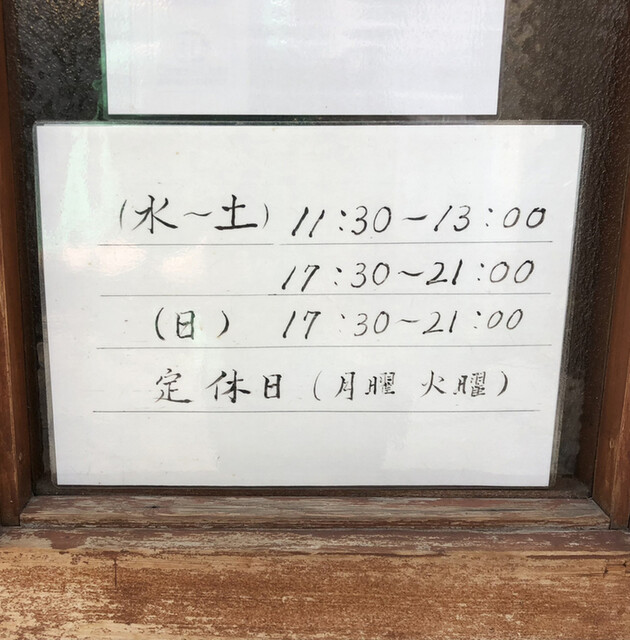 (水～土) 11:30～13:00
17:30～21:00
(日) 17:30～21:00
定休日 (月曜 火曜)